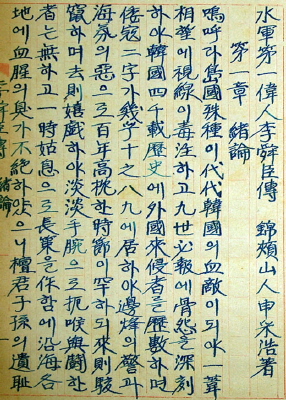 水軍第一偉人李舜臣傳 錦頰山人申采浩著
第一章 緖論
嗚呼라島國殊種이代代韓國의血敵이되야一葦
相望에視線이毒注하고九世必報에骨怨을深刻
하야韓國四千載歷史에外國來侵者를歷數하며
倭寇二字가幾乎十之八九에居하야邊烽의警과
海氛의惡으로百年高枕한時節이罕하되來則駭
竄하며去則嬉戲하야淡淡手腕으로扼喉與鬪한
者는無하고一時姑息으로長策을作함에沿海各
地에血腥의臭가不絶하얏으니檀君子孫의遺恥
李舜臣傳 緖論 一